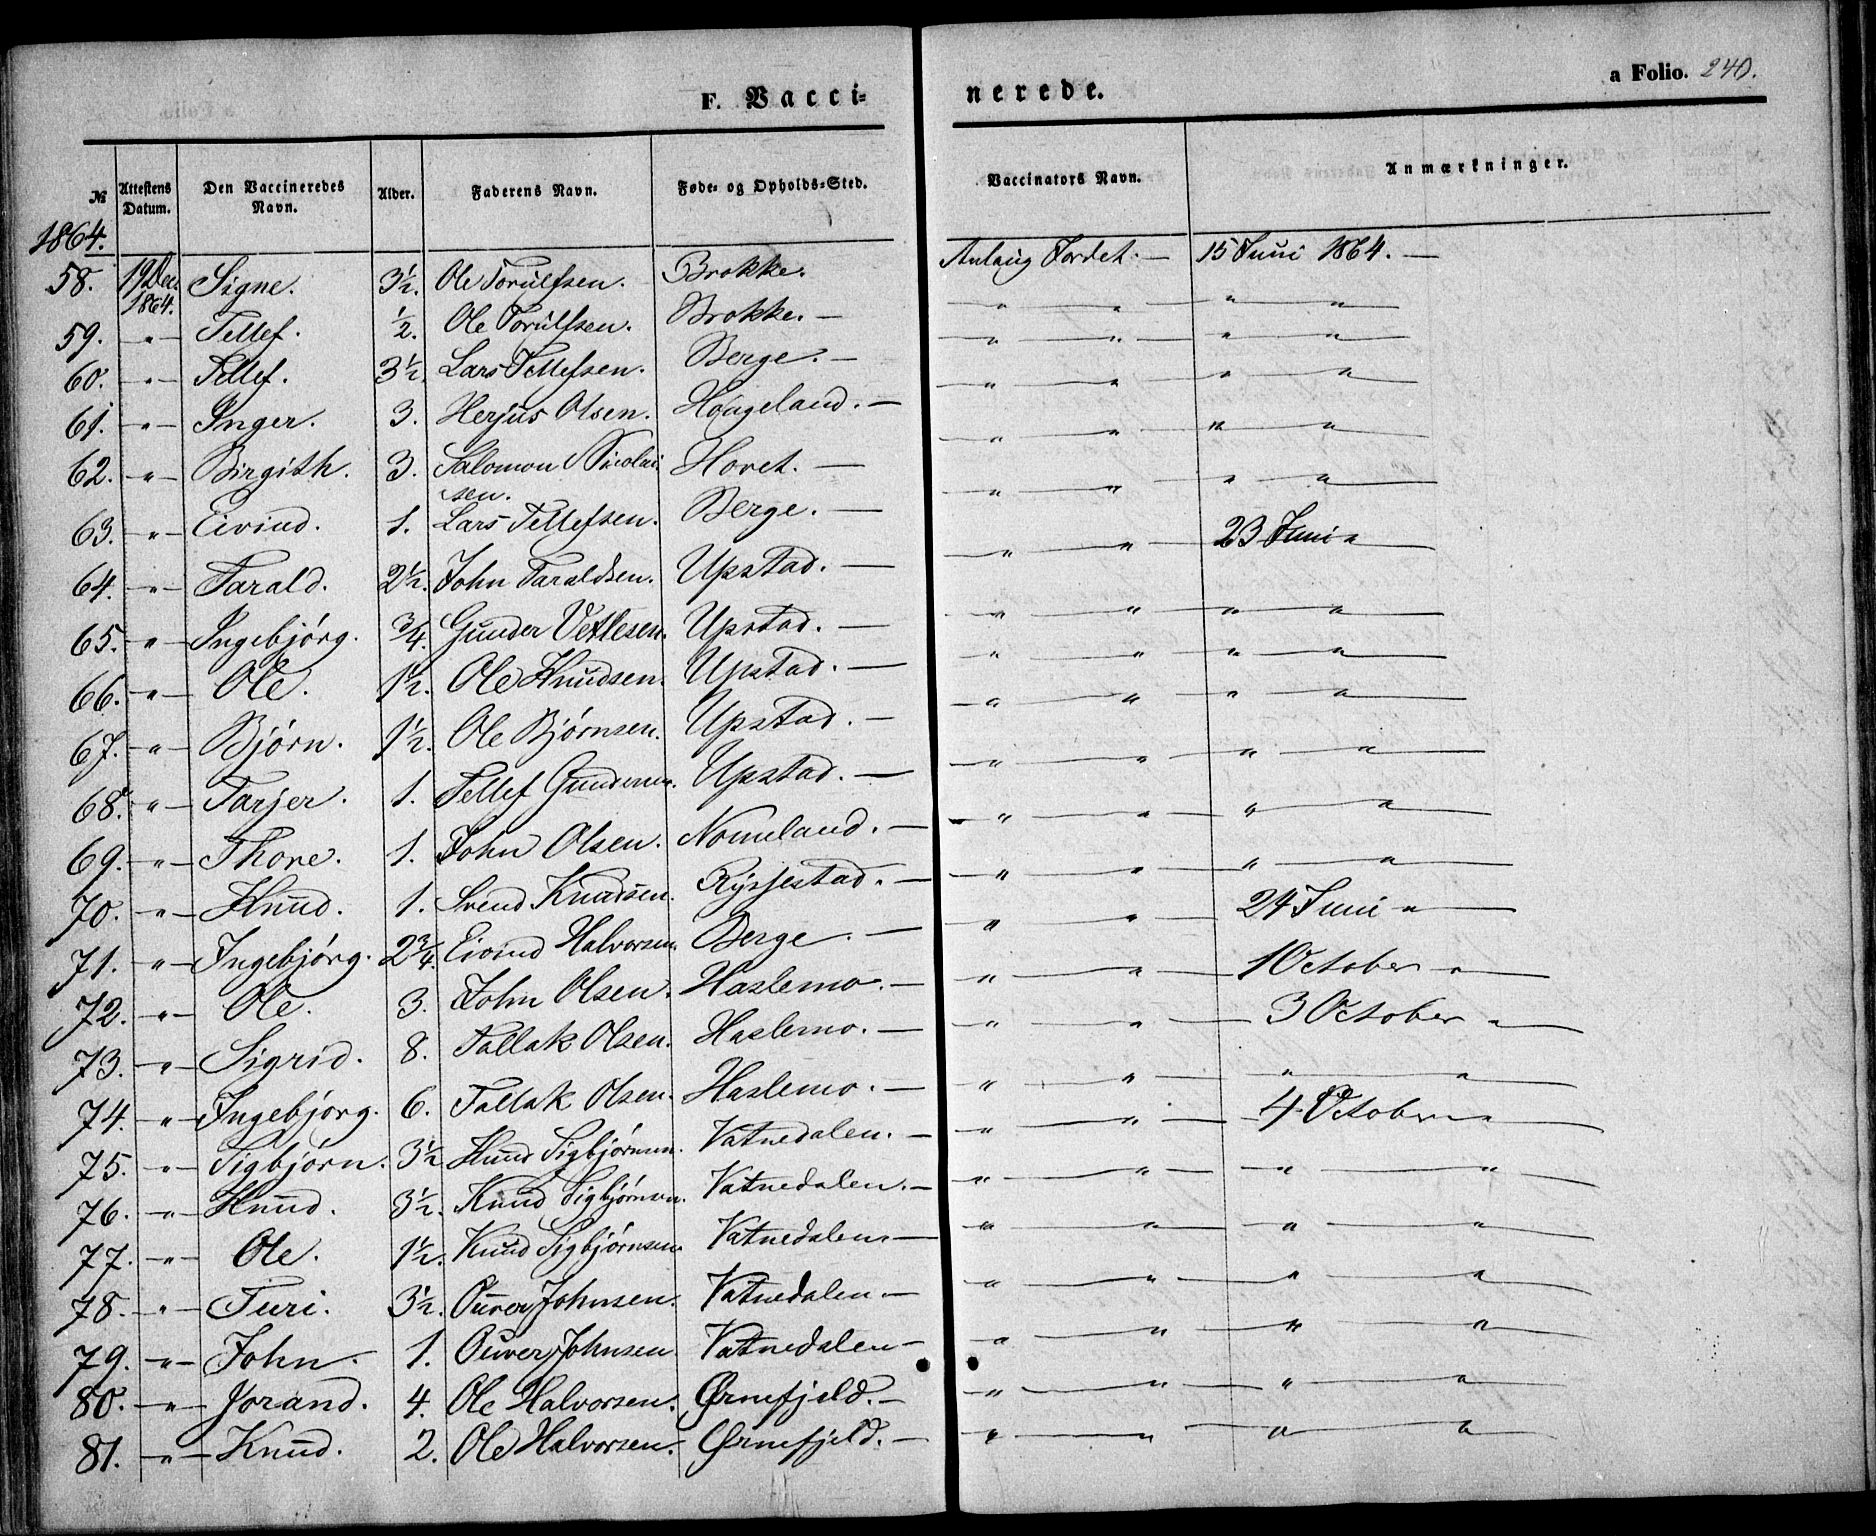 F. Vacci-
nerede.
a Folio. 240.
№ Attestens Datum. Den Vaccineredes Navn. Alder. Faderens Navn. Føde- og Opholds-Sted. Vaccinators Navn. Anmærkninger.
1864.
58. 19 Dec. 1864. Signe. 3½. Ole Torulfsen. Brokke. Anlaug Jordet. — 15 Juni 1864. —
59. —"— Tellef. ½. Ole Torulfsen. Brokke. — " " " "
60. —"— Tellef. 3½. Lars Tellefsen. Berge. — " " " "
61. —"— Inger. 3. Herjus Olsen. Høugeland. — " " " "
62. —"— Birgith. 3. Salomon Nicolai
sen. Hovet. — " " " "
63. —"— Eivind. 1. Lars Tellefsen. Berge. — " " " "
64. —"— Tarald. 2½. John Taraldsen. Upstad. — " " 23 Juni "
65. —"— Ingebjørg. ¾. Gunder Vetlesen. Upstad. — " " " "
66. —"— Ole. 1½. Ole Knudsen. Upstad. — " " " "
67. —"— Bjørn. 1½. Ole Bjørnsen. Upstad. — " " " "
68. —"— Tarjer. 1. Tellef Gundersen. Upstad. — " " " "
69. —"— Thore. 1. John Olsen. Nomeland. — " " " "
70. —"— Knud. 1. Svend Knudsen. Rysjestad. — " " " "
71. —"— Ingebjørg. 2¾. Eivind Halvorsen. Berge. — " " 24 Juni "
72. —"— Ole. 3. John Olsen. Haslemo. — " " 1 October "
73. —"— Sigrid. 8. Tallak Olsen. Haslemo. — " " 3 October "
74. —"— Ingebjørg. 6. Tallak Olsen. Haslemo. — " " " "
75. —"— Sigbjørn. 3½ Knud Sigbjørnsen. Vatnedalen. — " " 4 October "
76. —"— Knud. 3½. Knud Sigbjørnsen. Vatnedalen. — " " " "
77. —"— Ole. 1½. Knud Sigbjørnsen. Vatnedalen. — " " " "
78. —"— Turi. 3½. Ouver Johnsen. Vatnedalen. — " " " "
79. —"— John. 1. Ouver Johnsen. Vatnedalen — " " " "
80. —"— Jorand. 4. Ole Halvorsen. Ørnefjeld. — " " " "
81. —"— Knud. 2. Ole Halvorsen. Ørnefjeld. — " " " "